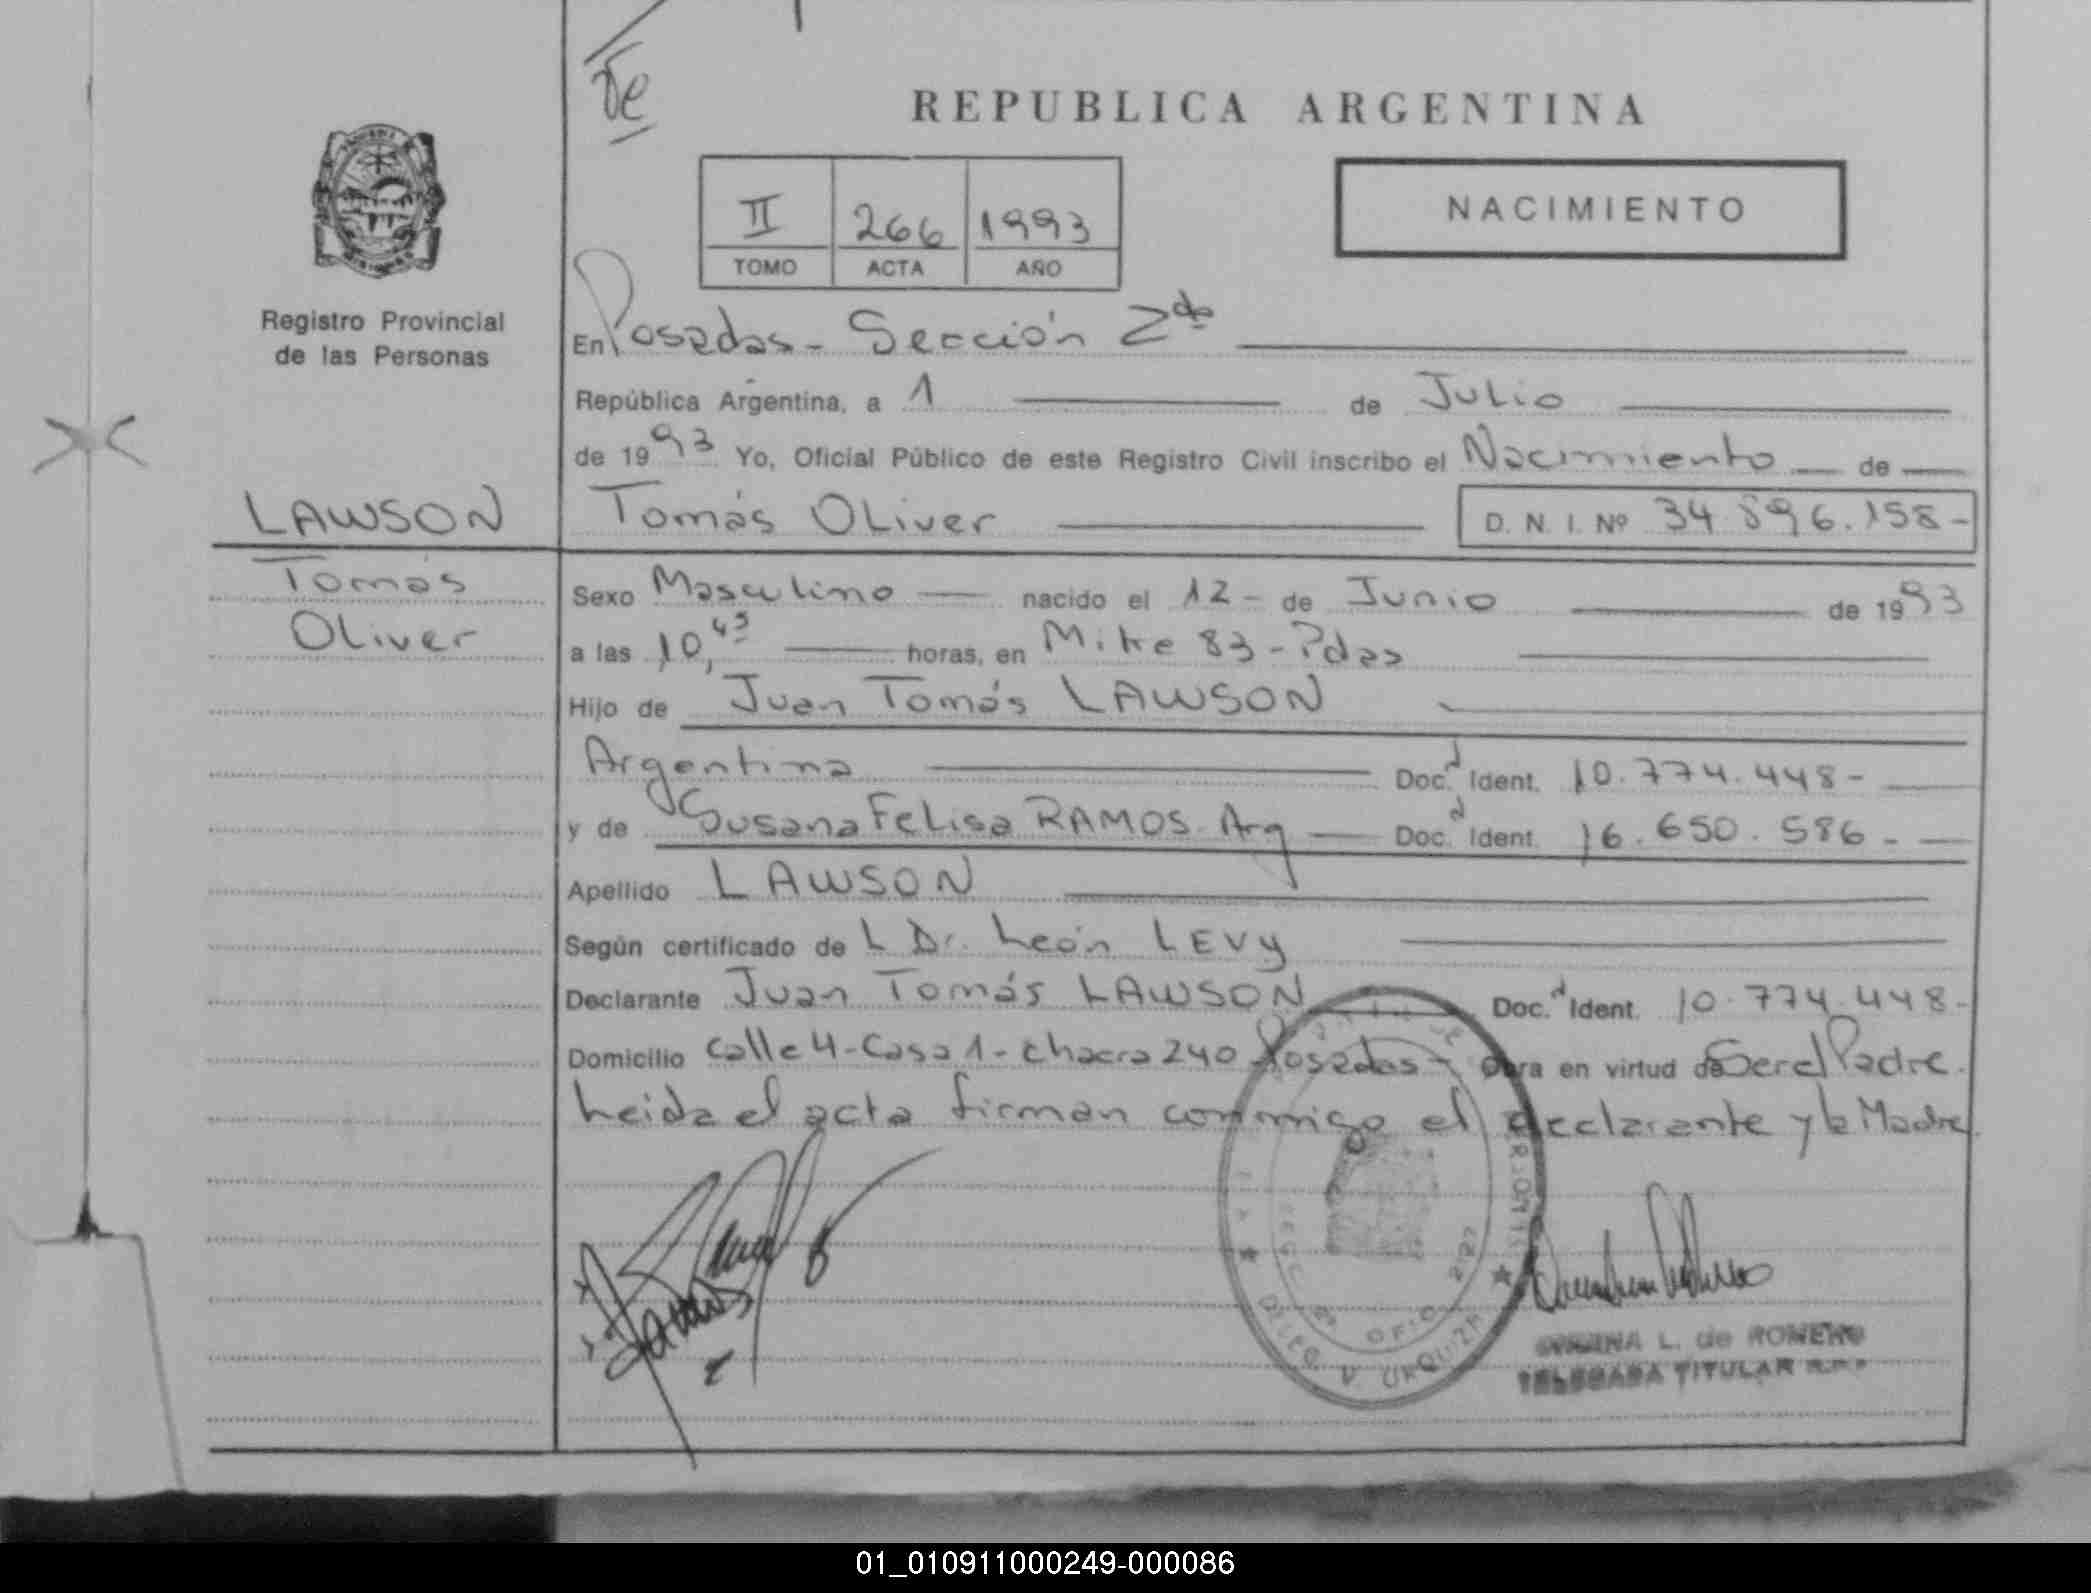 De
REPUBLICA ARGENTINA
NACIMIENTO
II 266 1993
TOMO ACTA AÑO
Registro Provincial
de las Personas
En Posadas - Sección 2da
República Argentina, a 1 de Julio
de 1993 Yo, Oficial Público de este Registro Civil inscribo el Nacimiento de
LAWSON Tomás Oliver D. N. I. Nº 34.896.158-
Tomás
Oliver
Sexo Masculino nacido el 12 - de Junio de 1993
a las 10,45 horas, en Mitre 83 - Pdas
Hijo de Juan Tomás LAWSON
Argentina Doc. d Ident. 10.774.448-
y de Susana Felisa RAMOS. Arg Doc. d Ident. 16.650.586-
Apellido LAWSON
Según certificado de L Dr. León LEVY
Declarante Juan Tomás LAWSON Doc. d Ident. 10.774.448-
Domicilio Calle 4 - Casa 1 - Chacra 240 Posadas - Obra en virtud de Ser el Padre.
Leida el acta firman conmigo el declarante y la Madre.
OFIC. 2127
DELEG. V. URQUIZA
L. de ROMERO
TITULAR R.P.P.
01_010911000249-000086